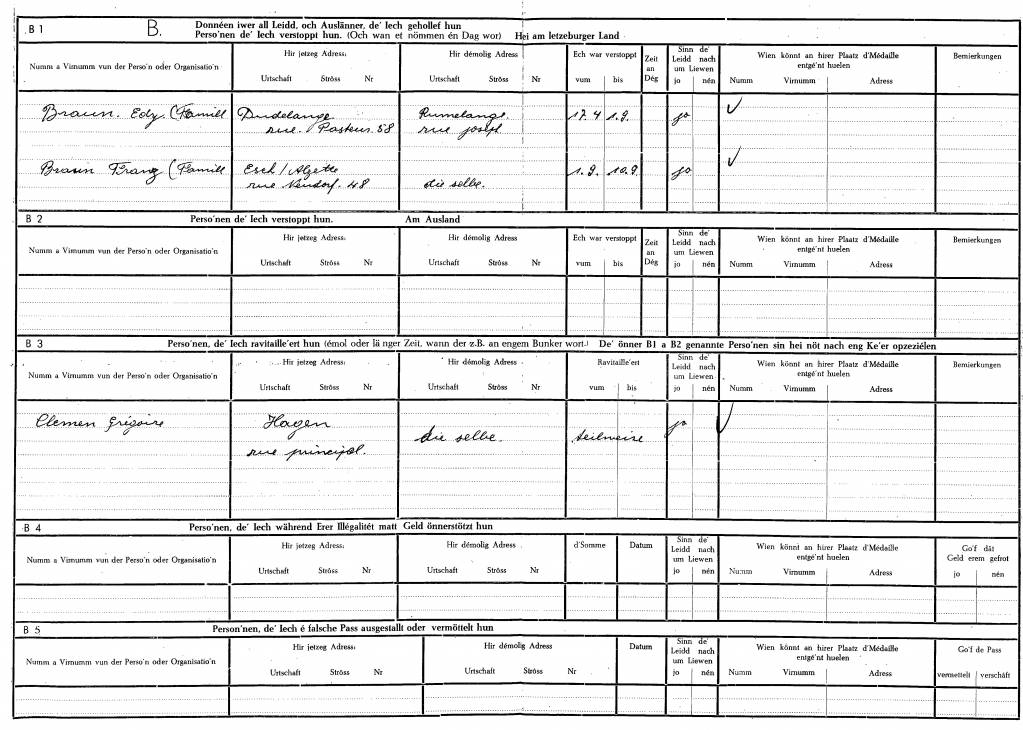 B 1 B. Donnéen iwer all Leidd, och Auslänner, de' Iech gehollef hun
Perso'nen de' Iech verstoppt hun. (Och wan et nömmen én Dag wor) Hei am letzeburger Land
Numm a Virnumm vun der Perso'n oder Organisatio'n
Hir jetzeg Adress:
Urtschaft Ströss Nr
Hir démolig Adress
Urtschaft Ströss Nr
Ech war verstoppt
vum bis
Zeit
an
Dég
Sinn de'
Leidd nach
um Liewen
jo nén
Wien könnt an hirer Plaatz d'Médaille
entgé'nt huelen
Numm Virnumm Adress
Bemierkungen
Braun. Edy. (Famill Dudelange Rumelange 17.4 1.9. jo
rue. Pasteur. 58 rue joseph
Braun Franz (Famill Esch / Alzette 1.9. 10.9. jo
rue Neudorf. 48 die selbe.
B 2 Perso'nen de' Iech verstoppt hun. Am Ausland
Numm a Virnumm vun der Perso'n oder Organisatio'n
Hir jetzeg Adress:
Urtschaft Ströss Nr
Hir démolig Adress
Urtschaft Ströss Nr
Ech war verstoppt
vum bis
Zeit
an
Dég
Sinn de'
Leidd nach
um Liewen
jo nén
Wien könnt an hirer Plaatz d'Médaille
entgé'nt huelen
Numm Virnumm Adress
Bemierkungen
B 3 Perso'nen, de' Iech ravitaille'ert hun (émol oder länger Zeit, wann der z.B. an engem Bunker wort.) De' önner B1 a B2 genannte Perso'nen sin hei nöt nach eng Ke'er opzeziélen
Numm a Virnumm vun der Perso'n oder Organisatio'n
Hir jetzeg Adress:
Urtschaft Ströss Nr
Hir démolig Adress
Urtschaft Ströss Nr
Ravitaille'ert
vum bis
Sinn de'
Leidd nach
um Liewen
jo nén
Wien könnt an hirer Plaatz d'Médaille
entgé'nt huelen
Numm Virnumm Adress
Bemierkungen
Clemen Grégoire Hagen die selbe. teilweise jo
rue principal.
B 4 Perso'nen, de' Iech während Erer Illégalitét matt Geld önnerstötzt hun
Numm a Virnumm vun der Perso'n oder Organisatio'n
Hir jetzeg Adress:
Urtschaft Ströss Nr
Hir démolig Adress
Urtschaft Ströss Nr
d'Somme Datum
Sinn de'
Leidd nach
um Liewen
jo nén
Wien könnt an hirer Plaatz d'Médaille
entgé'nt huelen
Numm Virnumm Adress
Go'f dât
Geld erem gefrot
jo nén
B 5 Person'nen, de' Iech é falsche Pass ausgestallt oder vermöttelt hun
Numm a Virnumm vun der Perso'n oder Organisatio'n
Hir jetzeg Adress:
Urtschaft Ströss Nr
Hir démolig Adress
Urtschaft Ströss Nr
Datum
Sinn de'
Leidd nach
um Liewen
jo nén
Wien könnt an hirer Plaatz d'Médaille
entgé'nt huelen
Numm Virnumm Adress
Go'f de Pass
vermettelt verschâft